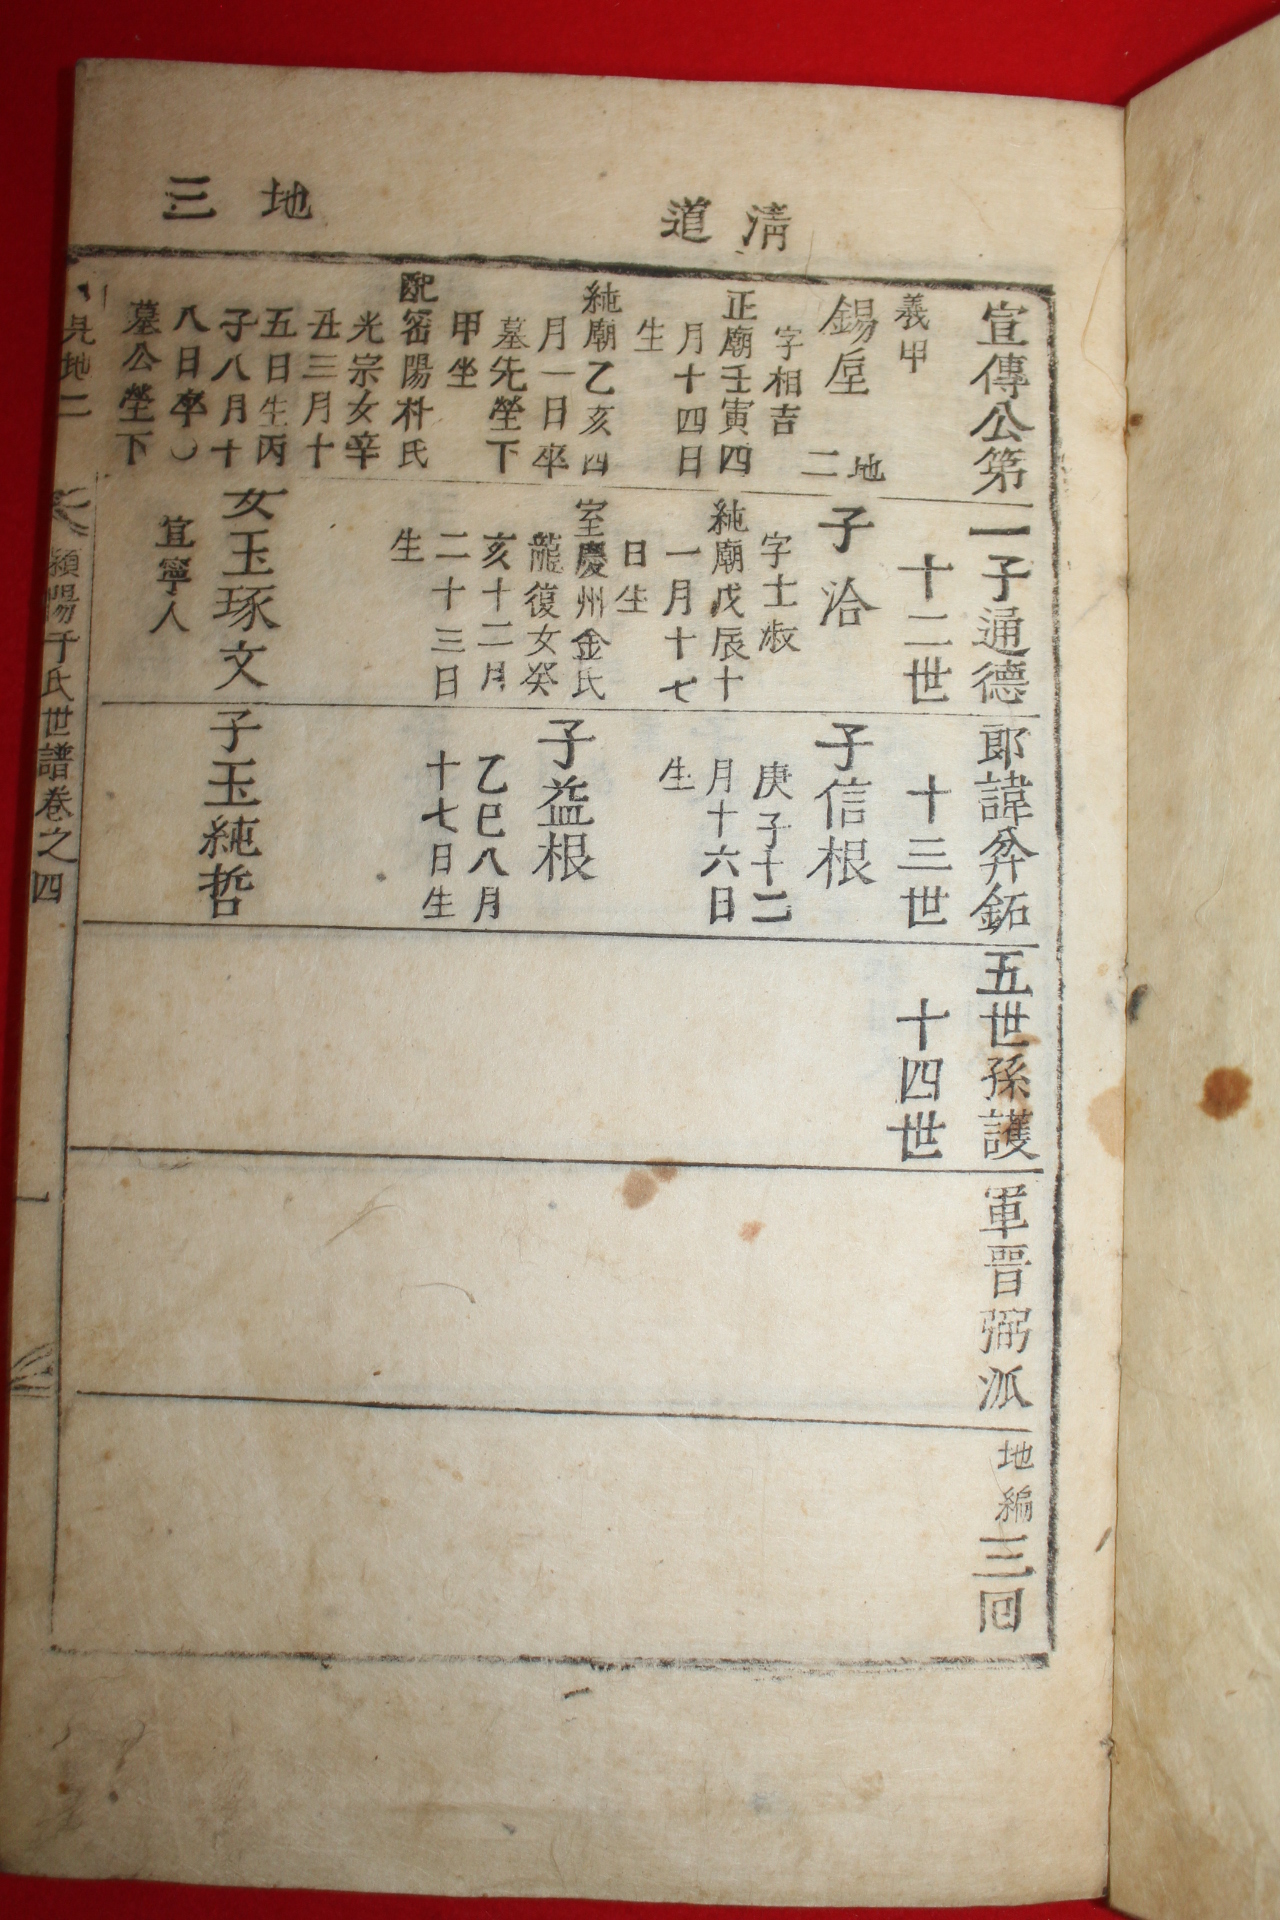 淸道
地三
宣傳公第一子通德郎諱弅鉐五世孫護軍晋弼派 地編三囘
義甲
十二世
十三世
十四世
錫垕 地二
字相吉
正廟壬寅四
月十四日
生
純廟乙亥四
月一日卒
墓先塋下
甲坐
配密陽朴氏
光宗女辛
丑三月十
五日生丙
子八月十
八日卒○
墓公塋下
子洽
字士淑
純廟戊辰十
一月十七
日生
室慶州金氏
龍復女癸
亥十二月
二十三日
生
女玉琢文
宜寧人
子信根
庚子十二
月十六日
生
子益根
乙巳八月
十七日生
子玉純哲
見地二
潁陽千氏世譜卷之四
一